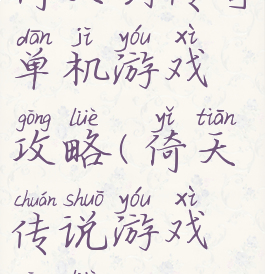 dān jī yóu xì
单机游戏
gōng lüè yǐ tiān
攻略(倚天
chuán shuō yóu xì
传说游戏